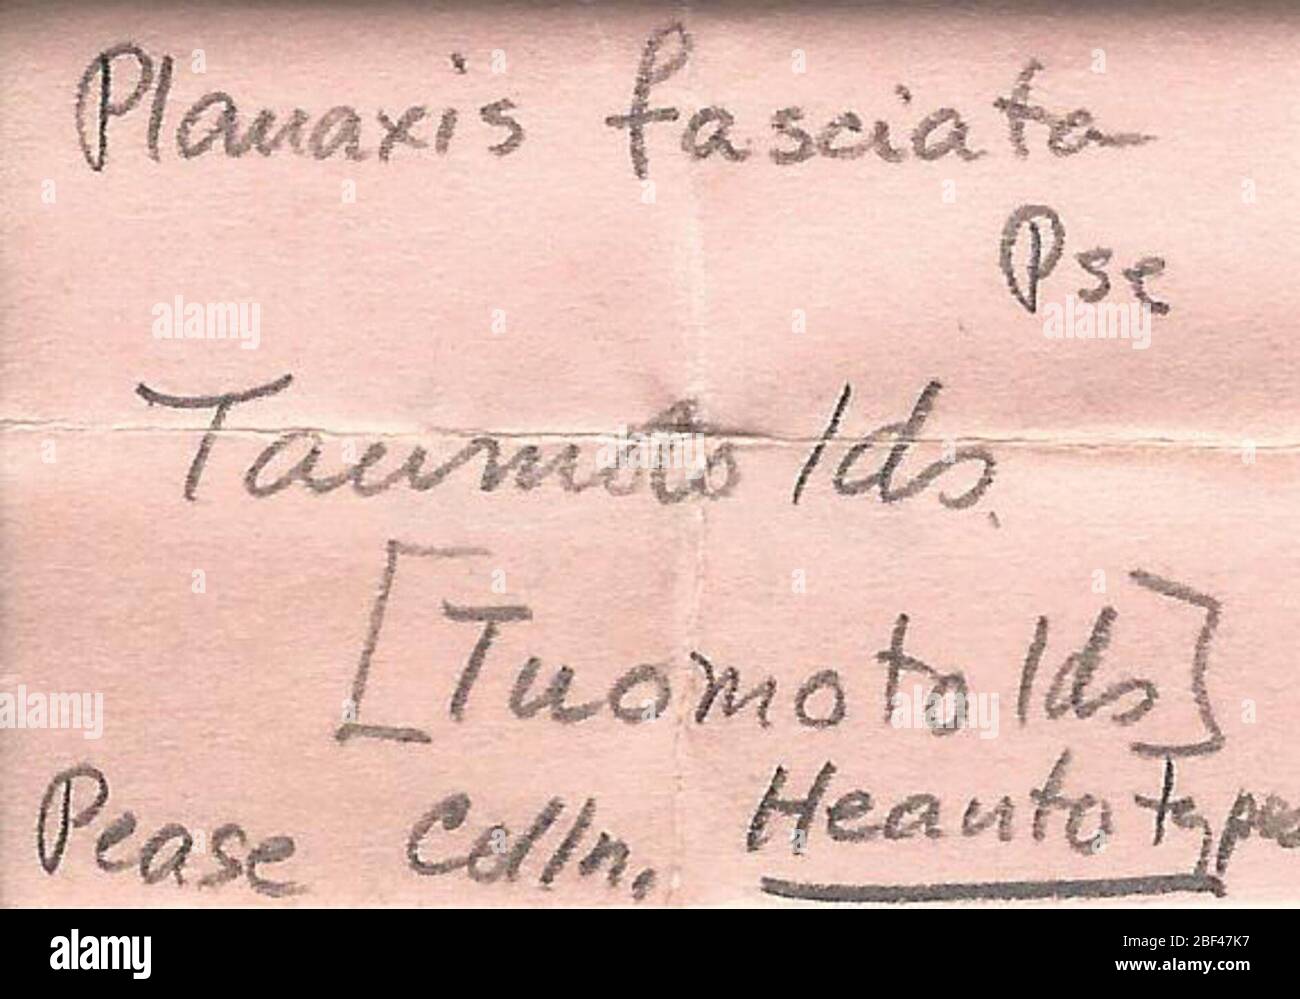 Planaxis fasciata
Pse
Taumoto Ids.
[Tuomoto Ids]
Pease Colln. Heautotypes
alamy
Image ID: 2BF47K7
www.alamy.com